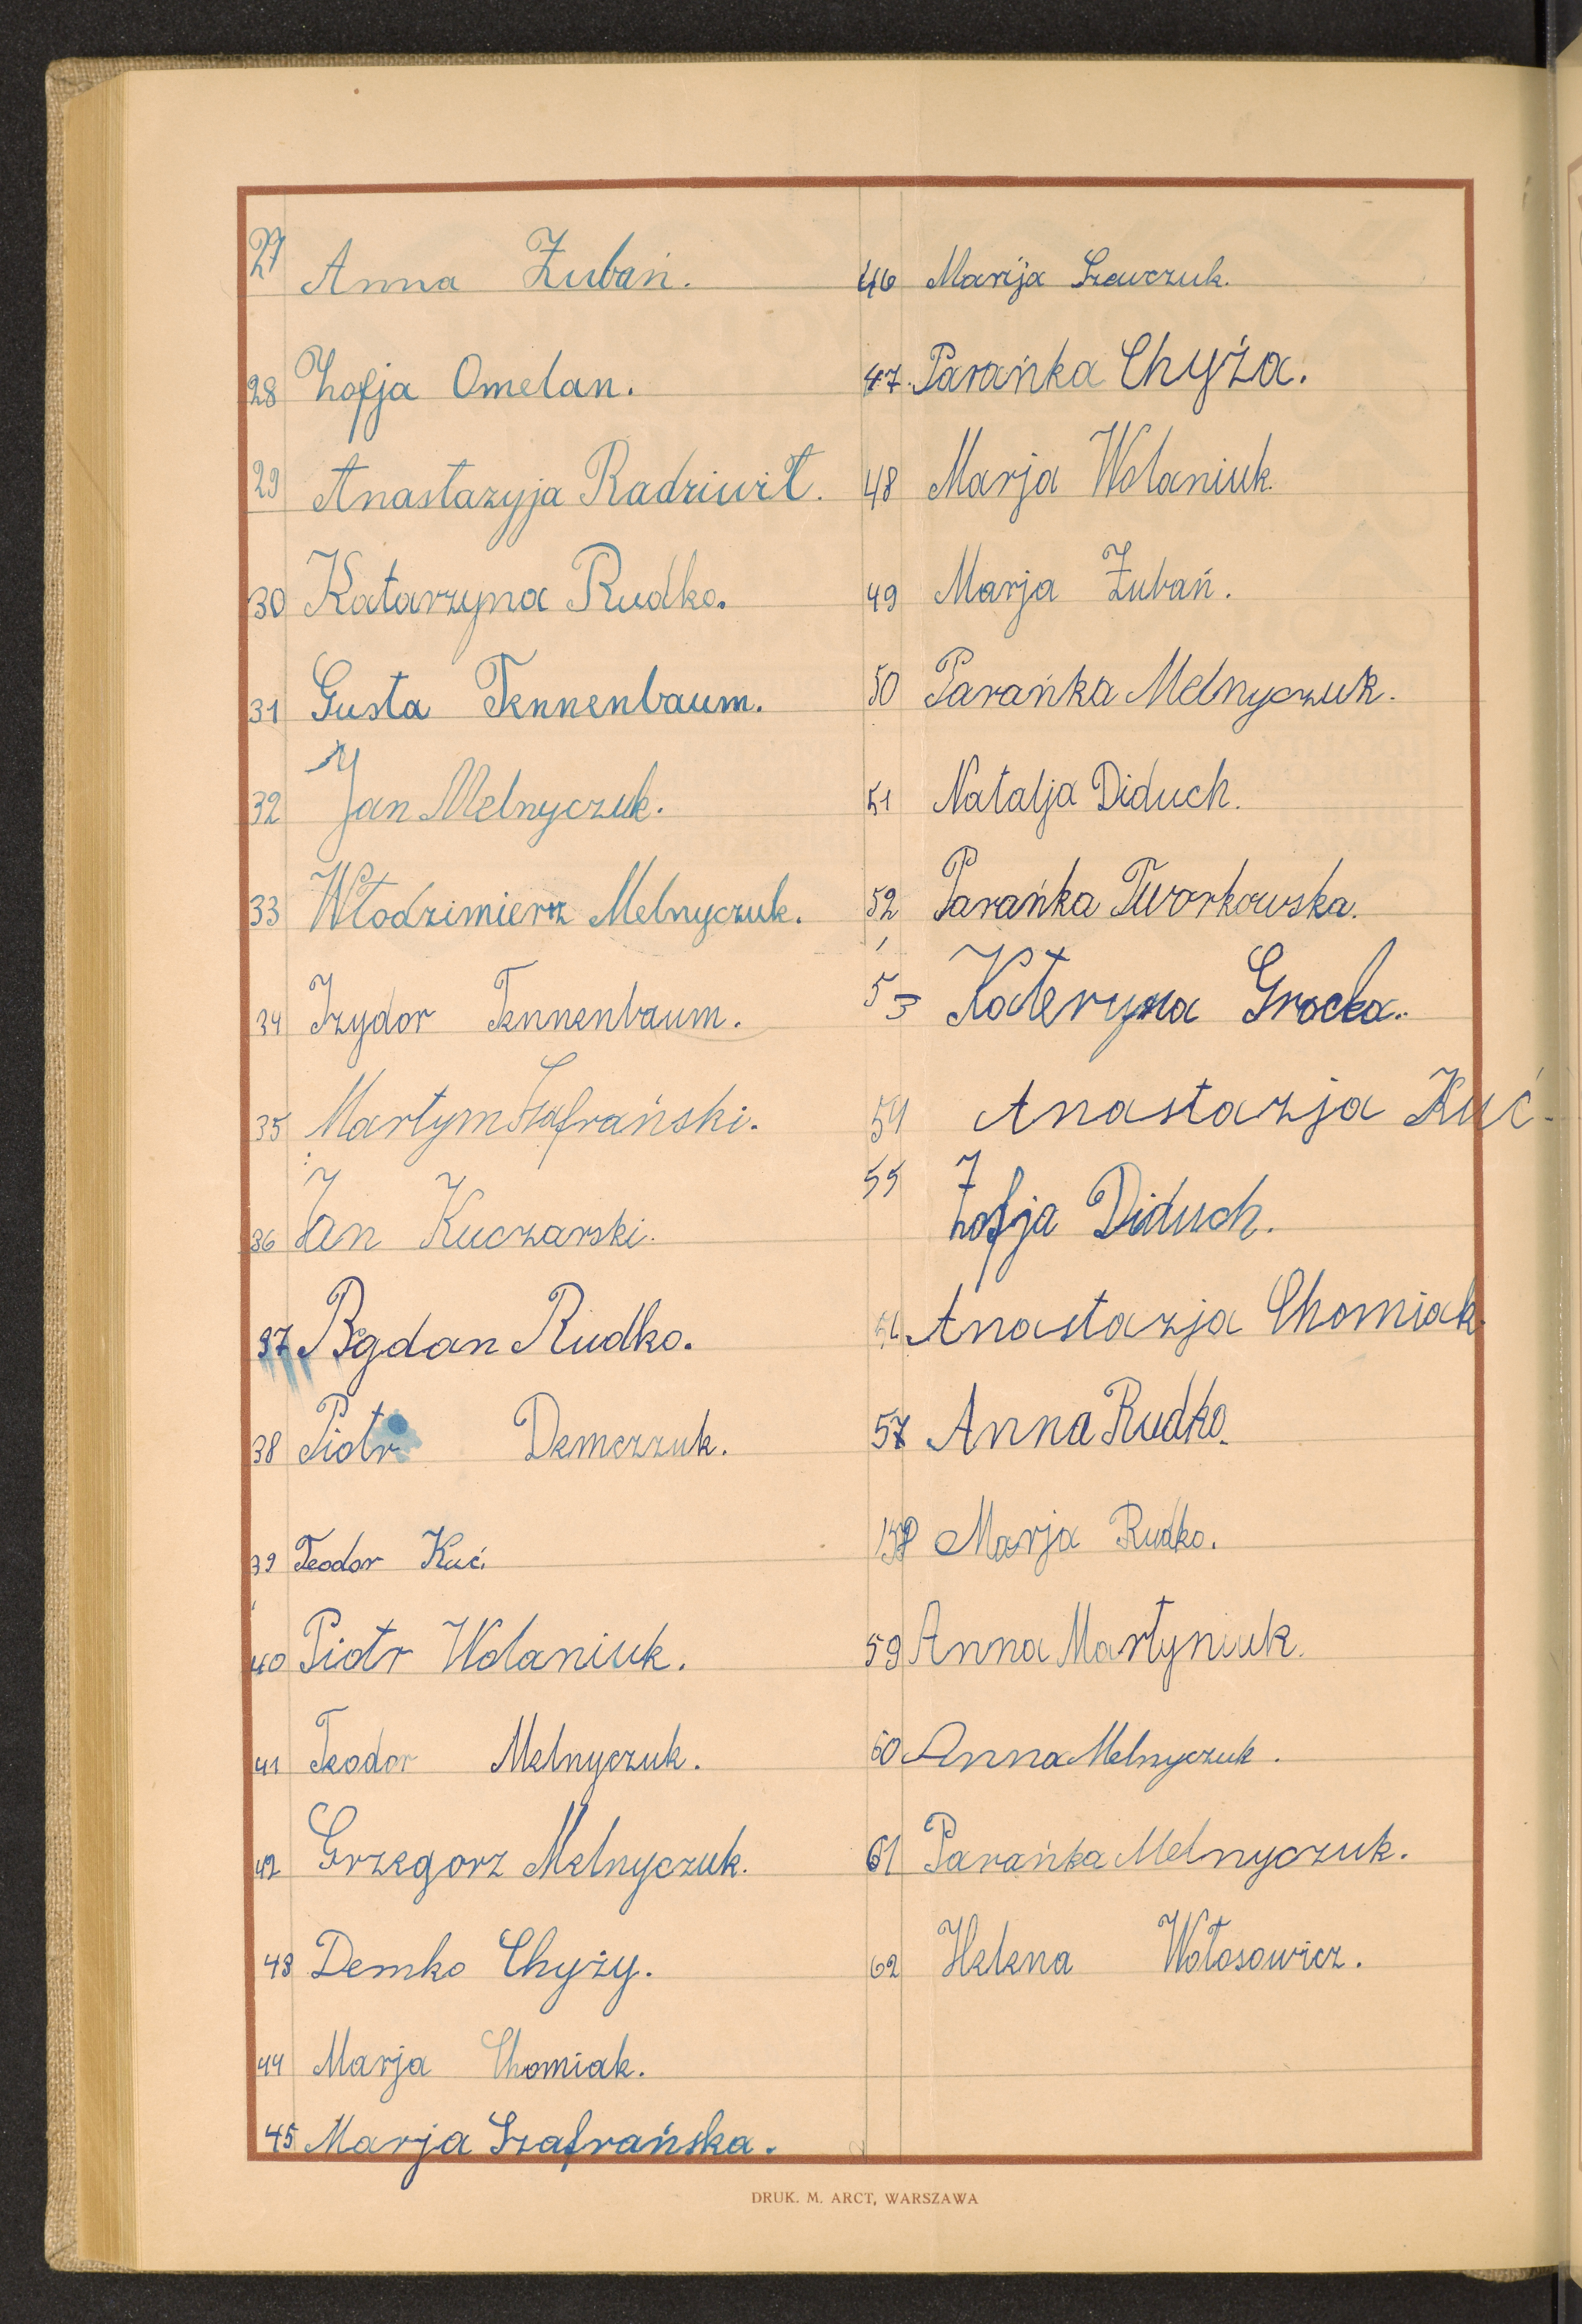 27 Anna Żubań.
28 Zofja Omelan.
29 Anastazyja Radziwił.
30 Katarzyna Rudko.
31 Gusta Tennenbaum.
32 Jan Melnyczuk.
33 Włodzimierz Melnyczuk.
34 Izydor Tennenbaum.
35 Martym Szafrański.
36 Jan Kuczarski.
37 Bogdan Rudko.
38 Piotr Demczzuk.
39 Teodor Kuć.
40 Piotr Wolaniuk.
41 Teodor Melnyczuk.
42 Grzegorz Melnyczuk.
43 Demko Chyży.
44 Marja Chomiak.
45 Marja Szafrańska.
46 Marija Szewczuk.
47. Parańka Chyża.
48 Marja Wolaniuk.
49 Marja Żubań.
50 Parańka Melnyczuk.
51 Natalja Diduch.
52 Parańka Tworkowska.
53 Kateryna Grocka.
54 Anastazja Kuć.
55 Zofja Diduch.
56 Anastazja Chomiak.
57 Anna Rudko.
58 Marja Rudko.
59 Anna Martyniuk.
60 Anna Melnyczuk.
61 Parańka Melnyczuk.
62 Helena Wołosowicz.
DRUK. M. ARCT, WARSZAWA